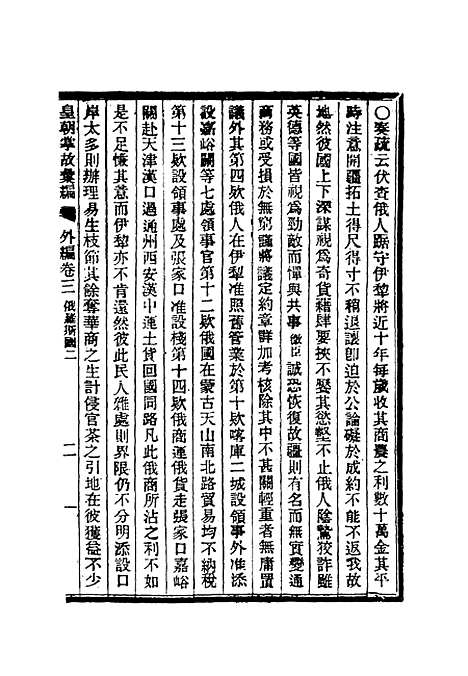 ○奏疏云伏查俄人踞守伊犂將近十年每歲收其商臺之利數十萬金其平
時注意開疆拓土得尺得寸不稍退讓卽迫於公論礙於成約不能不返我故
地然彼國上下深謀視爲奇貨藉肆要挾不饜其慾壑不止俄人陰鷙狡詐雖
英德等國皆視爲勁敵而憚與共事微臣誠恐恢復故疆則有名而無實變通
商務或受損於無窮謹將議定約章群加考核除其中不甚關輕重者無庸置
議外其第四欵俄人在伊犂准照舊管業於第十欵喀庫二城設領事外准添
設嘉峪關等七處領事官第十二欵俄國在蒙古天山南北路貿易均不納稅
第十三欵設領事處及張家口准設棧第十四欵俄商運俄貨走張家口嘉峪
關赴天津漢口過通州西安漢中運土貨回國同路凡此俄商所沾之利不如
是不足愜其意而伊犂亦不肯還然彼此民人雜處則界限仍不分明添設口
岸太多則辦理易生枝節其餘奪華商之生計侵官茶之引地在彼獲益不少
皇朝掌故彙編 外編卷三 俄羅斯國二 二